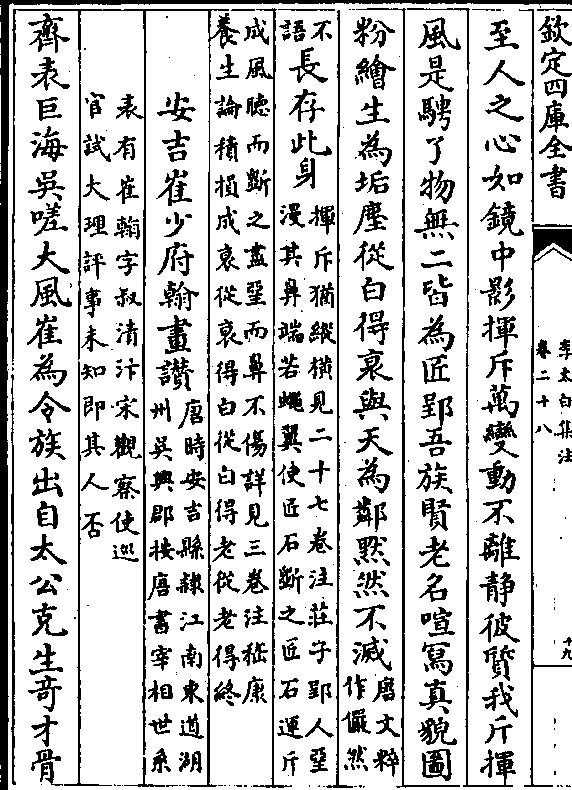 欽定四庫全書
李太白集注
卷二十八
十九
至人之心如鏡中影揮斥萬變動不離静彼質我斤揮
風是騁了物無二皆為匠郢吾族賢老名喧寫真貌圖
粉繪生為垢塵從白得衰與天為鄰黙然不滅唐文粹
作儼然
不
語長存此身揮斥猶縱横見二十七卷注莊子郢人堊
漫其鼻端若蠅翼使匠石斲之匠石運斤
成風聴而斲之盡堊而鼻不傷詳見三卷注嵇康
養生論積損成衰從衰得白從白得老從老得終
安吉崔少府翰畫讚唐時安吉縣隷江南東道湖
州吳興郡按唐書宰相世系
表有崔翰字叔清汴宋觀察使巡
官試大理評事未知即其人否
齊表巨海吳嗟大風崔為令族出自太公克生竒才骨